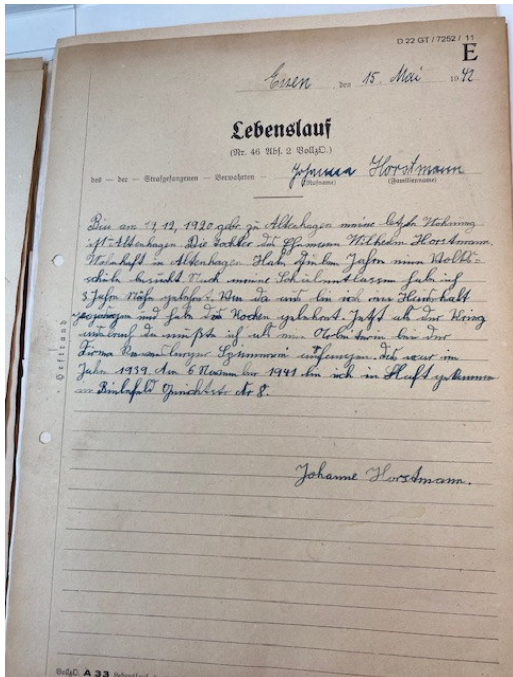 D 22 GT / 7252 / 11
E
Essen den 15. Mai 1942
Lebenslauf
(Nr. 46 Abs. 2 VollzO.)
des — der — Strafgefangenen — Verwahrten — Johanna Horstmann
(Rufname) (Familienname)
Bin am 19, 12, 1920 gebr. zu Altenhagen meine letzte Wohnung
ist Altenhagen Die Tochter des Wilhelm Horstmann,
Wohnhaft in Altenhagen Habe Jahre eine Volks-
schule besucht. Nach meine Schulentlassen habe ich
3 Jahre Nähen gelernt. Von da aus bin ich im Haushalt
gegangen und habe das Kochen gelernt. Jetzt als der Krieg
ausbrach da mußte ich als eine Arbeiterin bei der
Firma Spinnerei anfangen. Das war im
Jahre 1939. Am 6 November 1941 bin ich in Haft gekommen
in Bielefeld Gerichtstr Nr 8.
Johanne Horstmann.
Heftrand
VollzO. A 33 Lebenslauf